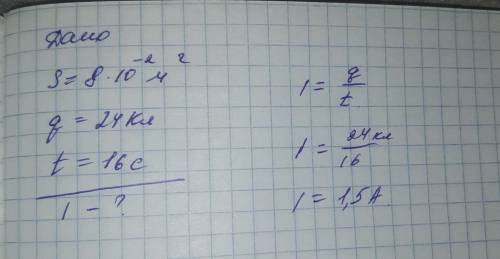 Дано
S = 8 · 10⁻² м²
q = 24 Кл
t = 16 с
I - ?
I = q / t
I = 24 Кл / 16
I = 1,5 А